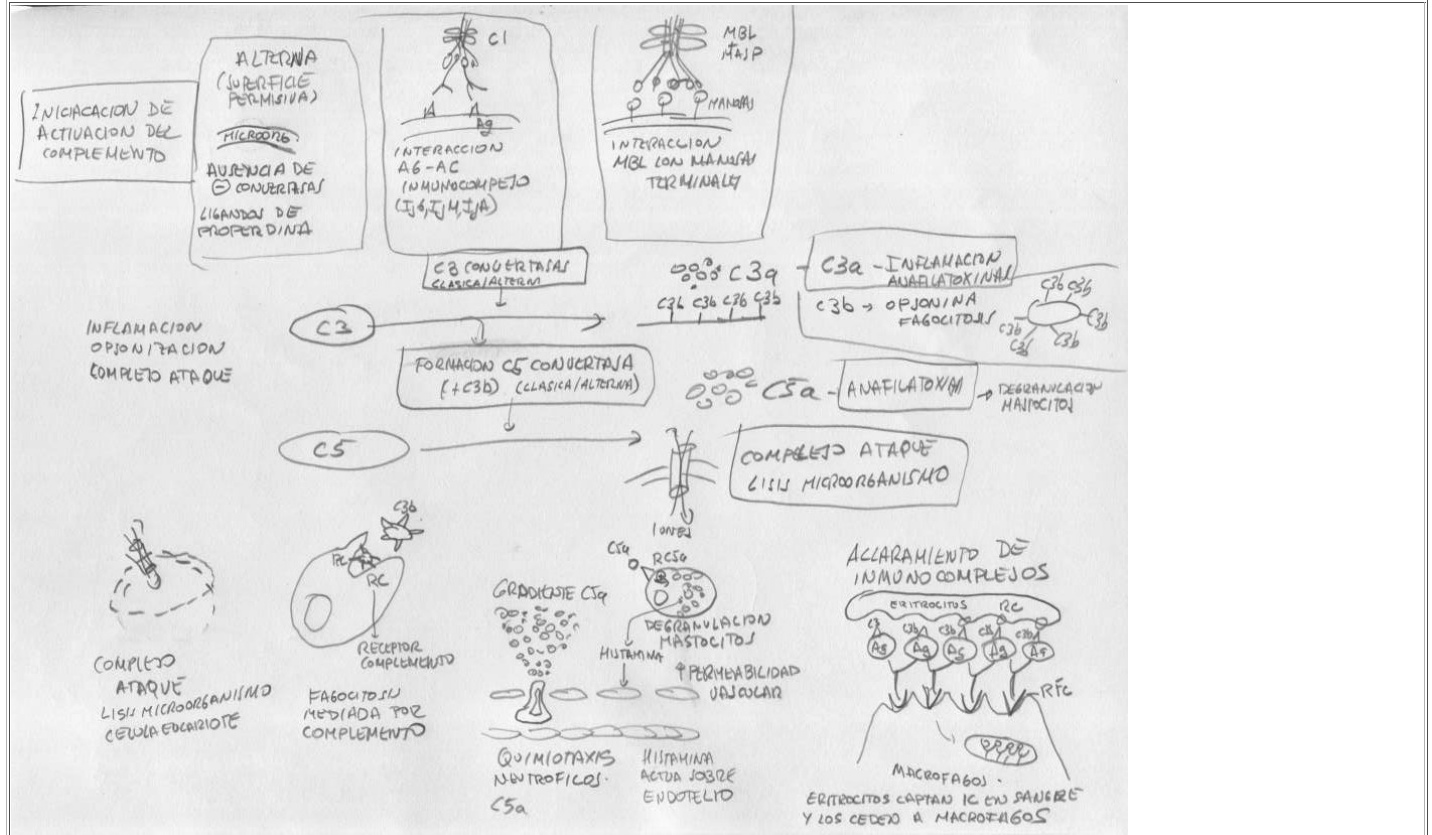 INICIACACION DE
ACTIVACION DEL
COMPLEMENTO
ALTERNA
(SUPERFICIE
PERMISIVA)
MICROORG.
AUSENCIA DE
⊖ CONVERTASAS
LIGANDOS DE
PROPERDINA
C1
Ag
INTERACCION
AG-AC
INMUNOCOMPEJO
(IgG, IgM, IgA)
MBL
MASP
MANOSAS
INTERACCION
MBL CON MANOSAS
TERMINALES
C3 CONVERTASAS
CLASICA/ALTERN
C3
C3a
C3b C3b C3b C3b
C3a - INFLAMACION
ANAFILATOXINAS
C3b → OPSONINA
FAGOCITOSIS
C3b C3b
C3b
C3b
C3b
C3b
INFLAMACION
OPSONIZACION
COMPLEJO ATAQUE
FORMACION C5 CONVERTASA
(+C3b) (CLASICA/ALTERNA)
C5a - ANAFILATOXINAS → DEGRANULACION
MASTOCITOS
C5
COMPLEJO ATAQUE
LISIS MICROORGANISMO
IONES
COMPLEJO
ATAQUE
LISIS MICROORGANISMO
CELULA EUCARIOTE
C3b
RC
RC
RECEPTOR
COMPLEMENTO
FAGOCITOSIS
MEDIADA POR
COMPLEMENTO
GRADIENTE C5a
QUIMIOTAXIS
NEUTROFILOS.
C5a
C5a
RC5a
DEGRANULACION
MASTOCITOS
HISTAMINA
↑ PERMEABILIDAD
VASCULAR
HISTAMINA
ACTUA SOBRE
ENDOTELIO
ACLARAMIENTO DE
INMUNOCOMPLEJOS
ERITROCITOS RC
C3 C3b C3b C3b C3b
Ag Ag Ag Ag Ag
RFC
MACROFAGOS.
ERITROCITOS CAPTAN IC EN SANGRE
Y LOS CEDEN A MACROFAGOS